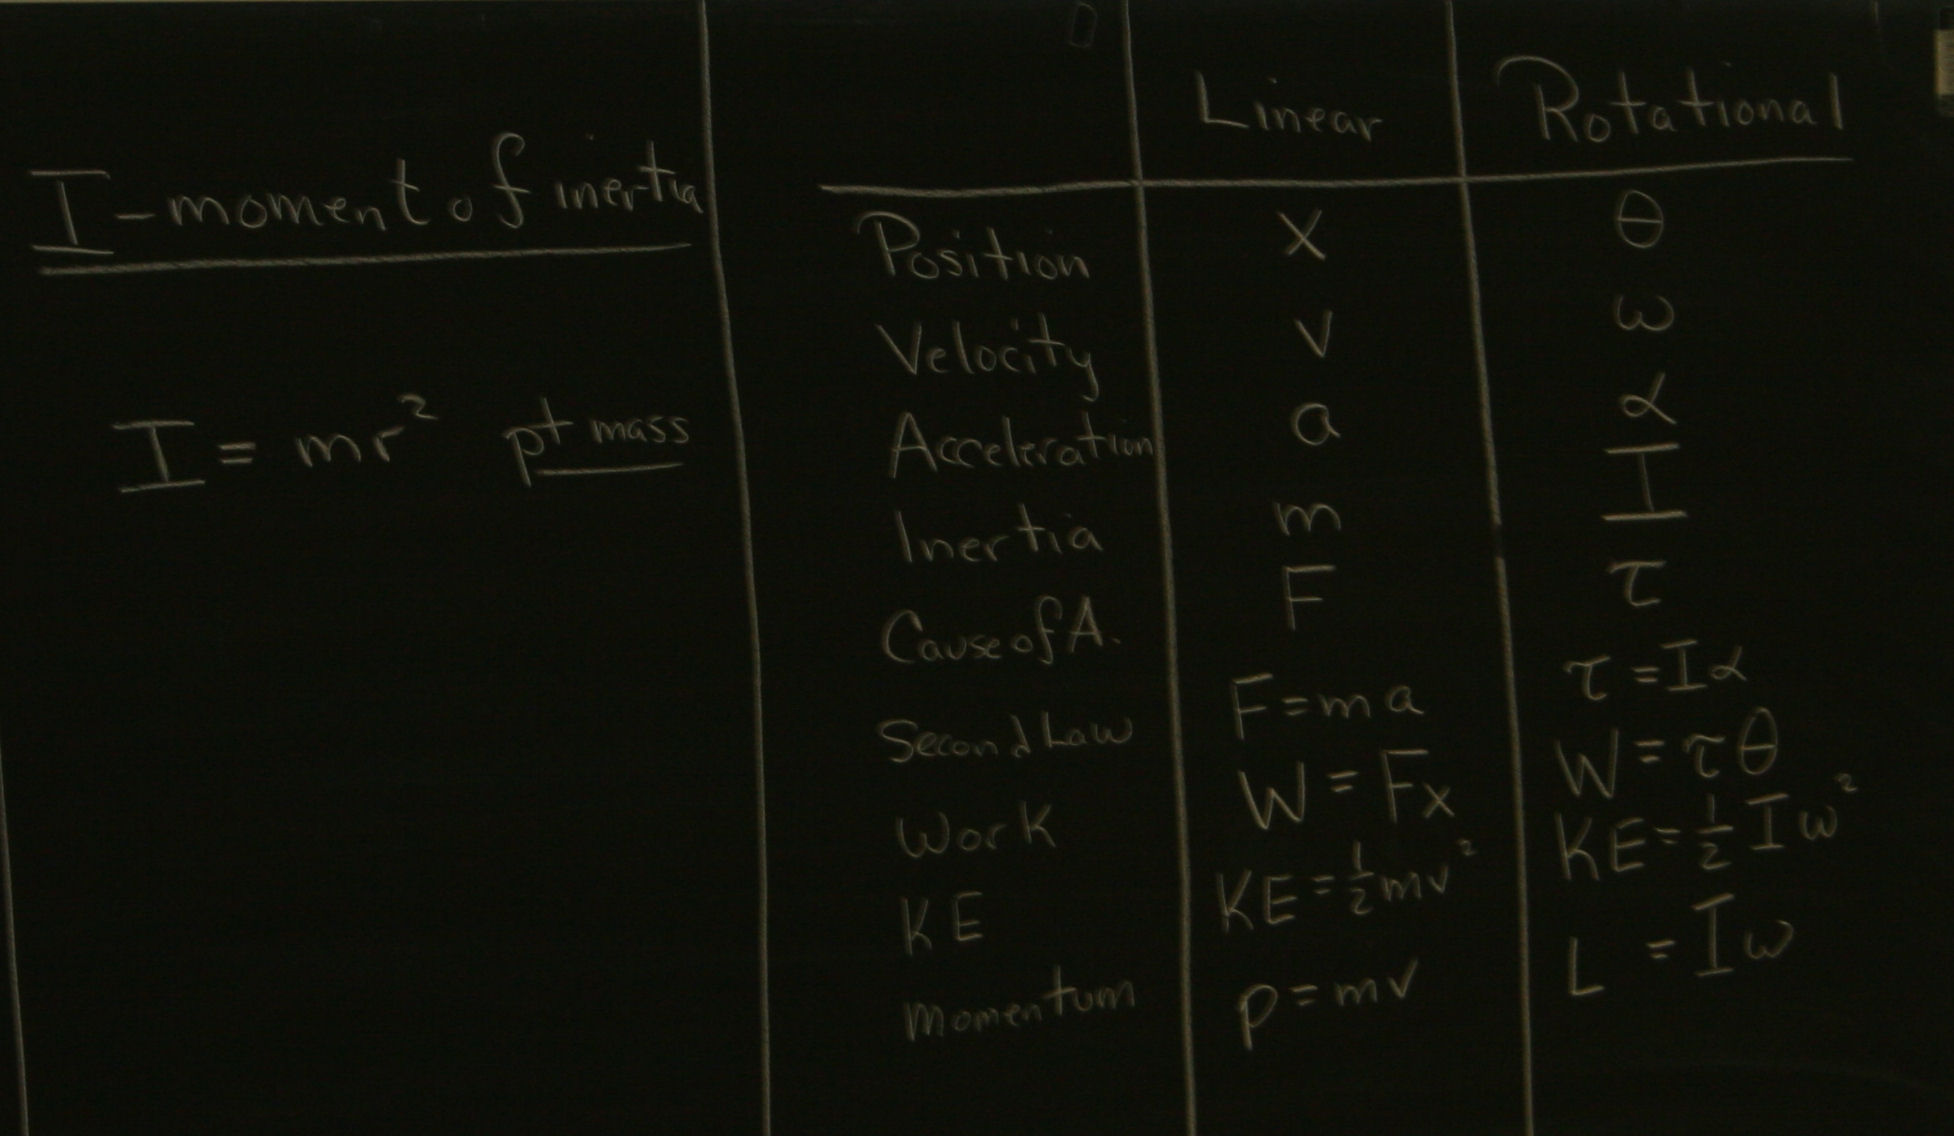 I - moment of inertia
I = mr² pt mass
Linear Rotational
Position x θ
Velocity v ω
Acceleration a α
Inertia m I
Cause of A. F τ
Second Law F = ma τ = Iα
Work W = Fx W = τθ
KE KE = ½mv² KE = ½Iω²
Momentum p = mv L = Iω